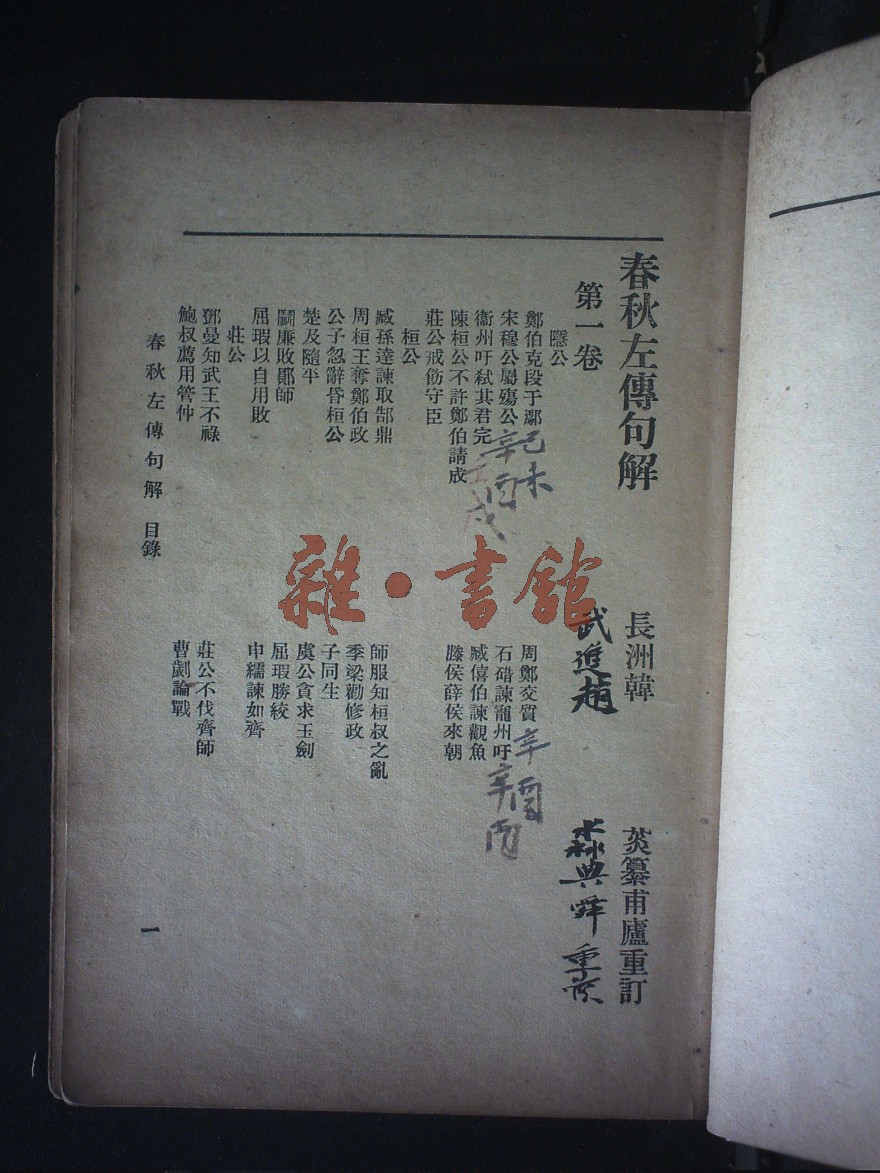 春秋左傳句解
長洲韓
菼纂甫廬重訂
第一卷
武進趙
森典
重
隱公
鄭伯克段于鄢
周鄭交質
宋穆公屬殤公
石碏諫寵州吁
衞州吁弒其君完
臧僖伯諫觀魚
陳桓公不許鄭伯請成
滕侯薛侯來朝
莊公戒飭守臣
己未
辛酉
戌
辛酉
辛酉
桓公
臧孫達諫取郜鼎
師服知桓叔之亂
周桓王奪鄭伯政
季梁勸修政
公子忽辭昏桓公
子同生
楚及隨平
虞公貪求玉劍
鬬廉敗鄖師
屈瑕勝絞
屈瑕以自用敗
申繻諫如齊
莊公
鄧曼知武王不祿
莊公不伐齊師
鮑叔薦用管仲
曹劌論戰
春秋左傳句解 目錄
一
雜·書館